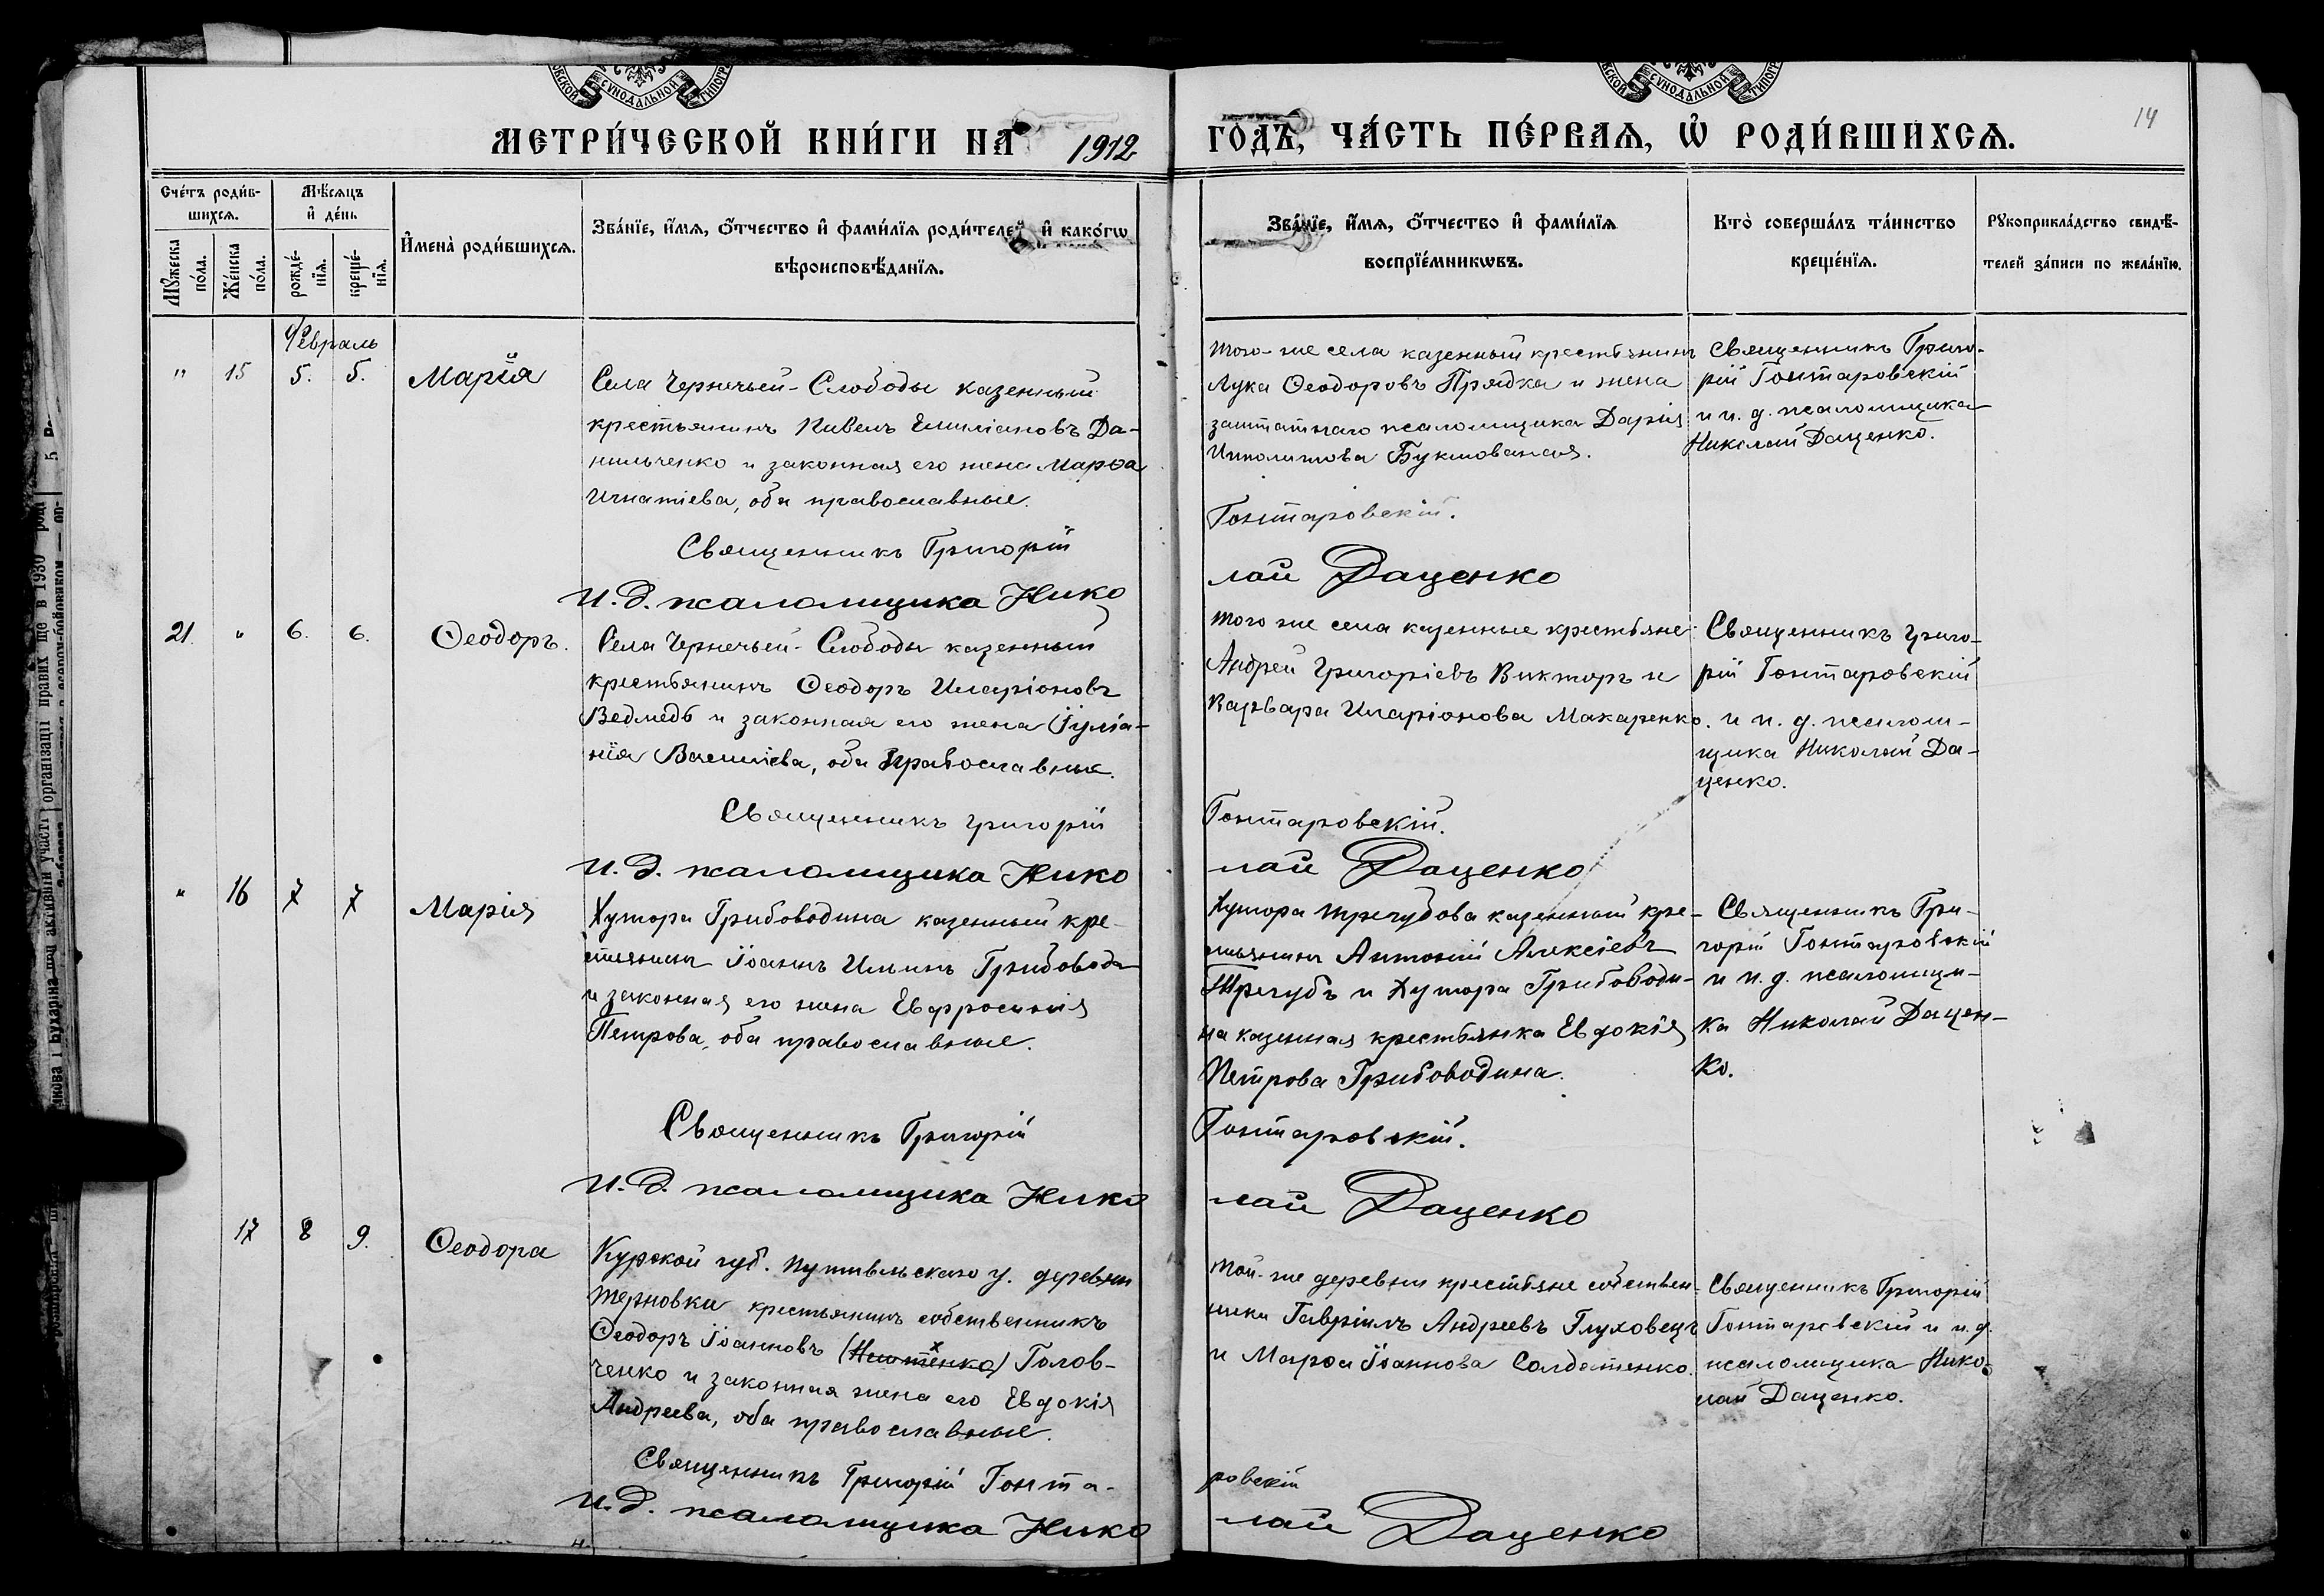 МЕТРИ́ЧЕСКОЙ КНИ́ГИ НА 1912 ГОДЪ, ЧА́СТЬ ПЕ́РВАЯ, Ѡ РОДИ́ВШИХСЯ.
14
СѴНОДАЛЬНОЙ
СѴНОДАЛЬНОЙ
Сче́тъ роди́в-
шихся.
Мꙋжеска по́ла.
Же́нска по́ла.
Мѣ́сяцъ
и҆ де́нь
рожде́-
нїя.
креще́-
нїя.
И҆мена̀ роди́вшихся.
Зва́нїе, и҆́мя, ѻ҆́тчество и҆ фами́лїя роди́телей и҆ како́гѡ
вѣроисповѣ́данїя.
Зва́нїе, и҆́мя, ѻ҆́тчество и҆ фами́лїя
воспрїе́мникѡвъ.
Кто̀ соверша́лъ та́инство
креще́нїя.
Рꙋкоприкла́дство свидѣ́-
телей за́писи по жела́нїю.
Февраль
" 15 5. 5. Марія
Села Чернечьей-Слободы казенный
крестьянинъ Павелъ Емиліановъ Да-
нильченко и законная его жена Марѳа
Игнатіева, оба православные.
Священникъ Григорій
И. д. псаломщика Нико
того-же села казенный крестьянинъ
Лука Ѳеодоровъ Прядка и жена
заштатнаго псаломщика Дарія
Ипполитова Букшованая.
Гонтаровскій.
лай Даценко
Священникъ Григо-
рій Гонтаровскій
и и. д. псаломщика
Николай Даценко.
21. " 6. 6. Ѳеодоръ.
Села Чернечьей-Слободы казенный
крестьянинъ Ѳеодоръ Иларіоновъ
Ведмедь и законная его жена Іуліа-
нія Василіева, оба православные.
Священникъ Григорій
И. д. псаломщика Нико
того же села казенные крестьяне:
Андрей Григоріевъ Викторъ и
Варвара Иларіонова Макаренко.
Гонтаровскій.
лай Даценко
Священникъ Григо-
рій Гонтаровскій
и и. д. псалом-
щика Николай Да-
ценко.
" 16 7 7 Марія
Хутора Грибоводина казенный кре-
стьянинъ Іоаннъ Ильинъ Грибовода
и законная его жена Евфросинія
Петрова, оба православные.
Священникъ Григорій
И. д. псаломщика Нико
Хутора Трегубова казенный кре-
стьянинъ Антоній Алексіевъ
Трегубъ и Хутора Грибоводи-
на казенная крестьянка Евдокія
Петрова Грибоводина.
Гонтаровскій.
лай Даценко
Священникъ Гри-
горій Гонтаровскій
и и. д. псаломщи-
ка Николай Дацен-
ко.
17 8 9. Ѳеодора
Курской губ. Путивльскаго у. деревни
Терновки крестьянинъ собственникъ
Ѳеодоръ Іоанновъ Голов-
ченко и законная жена его Евдокія
Андреева, оба православные.
Священникъ Григорій Гонта-
И. д. псаломщика Нико
той-же деревни крестьяне собствен-
ники Гавріилъ Андреевъ Глуховецъ
и Марѳа Іоаннова Солдатенко.
ровскій
лай Даценко
Священникъ Григорій
Гонтаровскій и и. д.
псаломщика Нико-
лай Даценко.